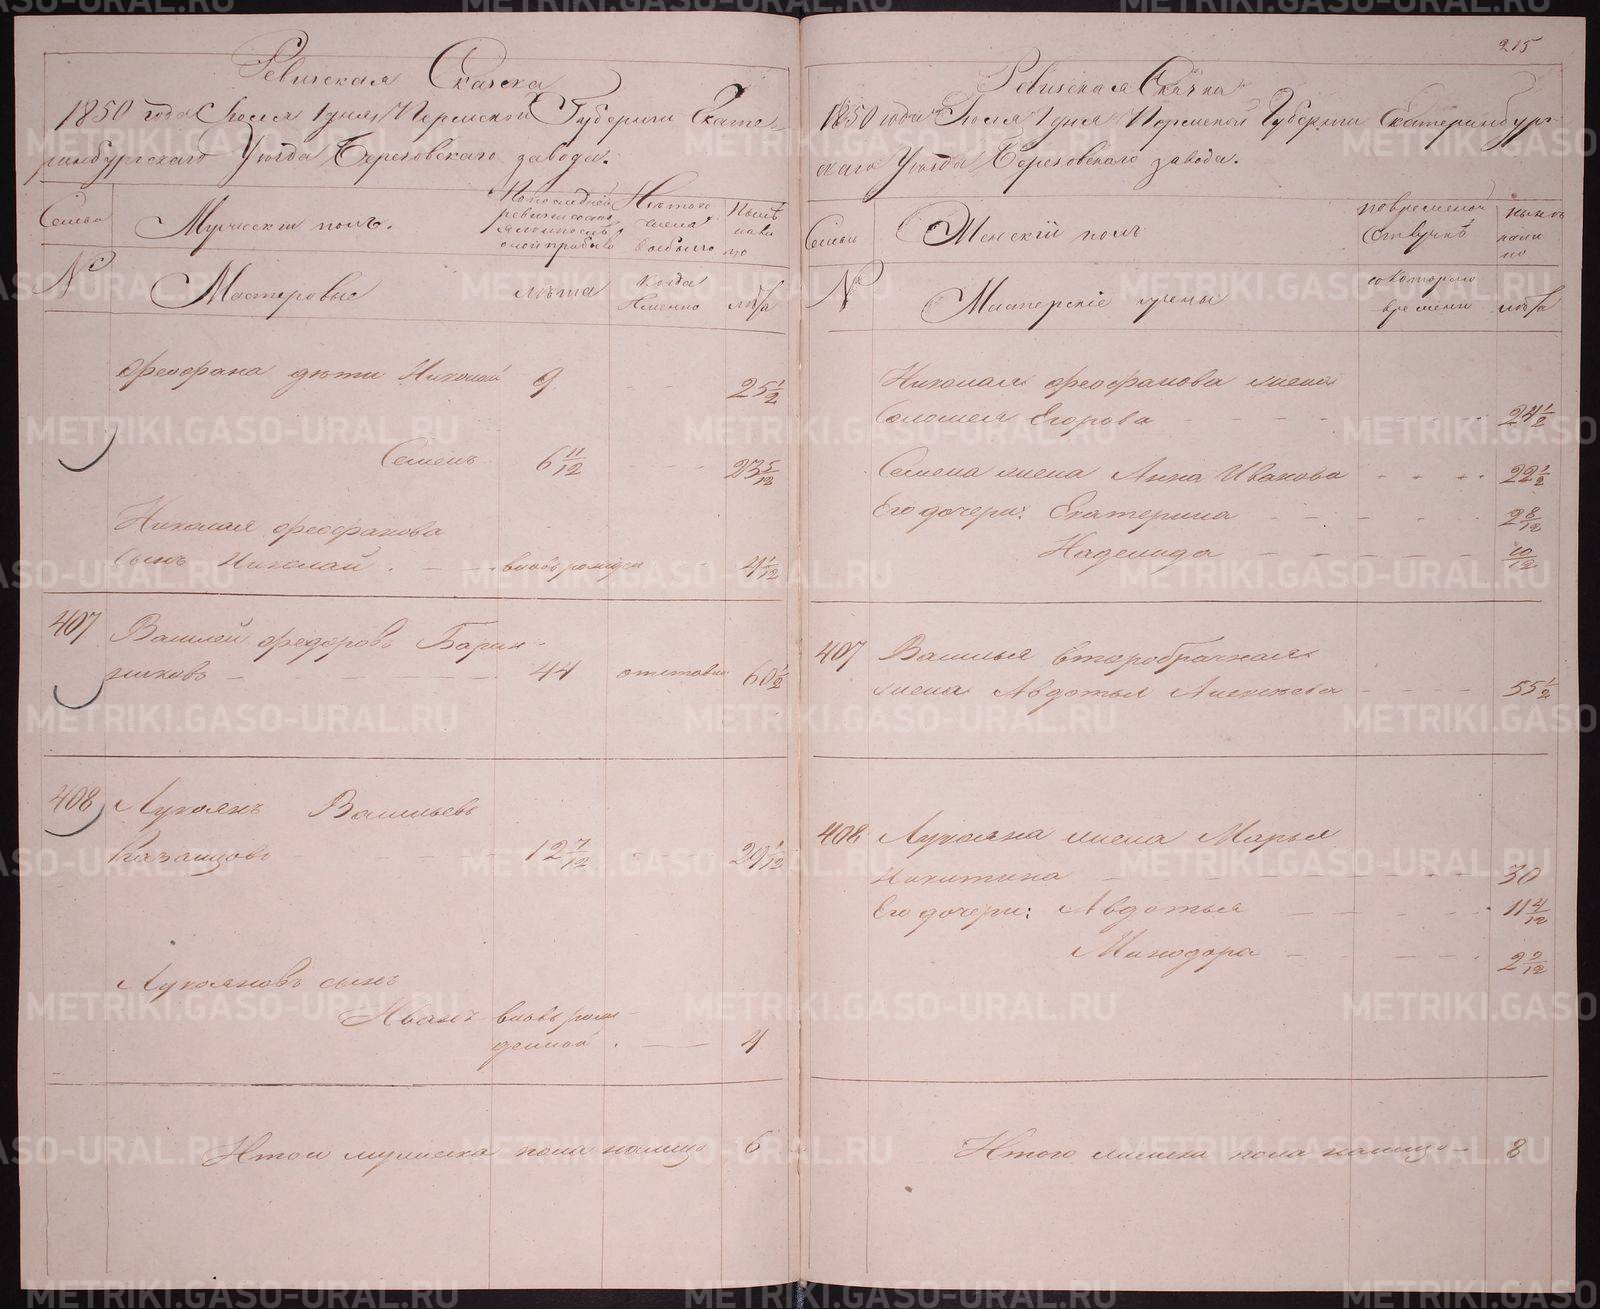 Ревизская Сказка
1850 года Июля 1 дня Пермской Губернии Екате-
ринбургскаго Уезда Березовскаго завода.
Семьи
Мужеский полъ.
По последней ревизии состояло и после оной прибыло
Изъ того числа выбыло
Ныне на лицо
№
Мастеровые
лета
когда Именно
лета
Феофана дети Николай 9 25 1/2
Семенъ 6 11/12 23 5/12
Николая Феофанова
сынъ Николай . вновь рожден 4 1/12
407 Василей Федоровъ Барин-
никовъ 44 отставн 60 1/2
408 Лукоянъ Васильевъ
Казанцовъ 12 7/12 29 1/12
Лукояновъ сынъ
Иванъ вновь рож-
денной . 4
Итого мужеска пола налицо 6
215
Ревизская Сказка
1850 года Июля 1 дня Пермской Губернии Екатеринбург-
скаго Уезда Березовскаго завода.
Семьи
Женский полъ
во временной отлучке
ныне на лицо
№
Мастерские жены
съ котораго времени
лета
Николая Феофанова жена
Соломея Егорова 24 1/2
Семена жена Анна Иванова 22 1/2
Его дочери: Екатерина 2 8/12
Надежда 10/12
407 Василья второбрачная
жена Авдотья Алексеева 55 1/2
408 Лукояна жена Марья
Никитина 30
Его дочери: Авдотья 11 4/12
Минодора 2 2/12
Итого женска пола налицо 8
METRIKI.GASO-URAL.RU